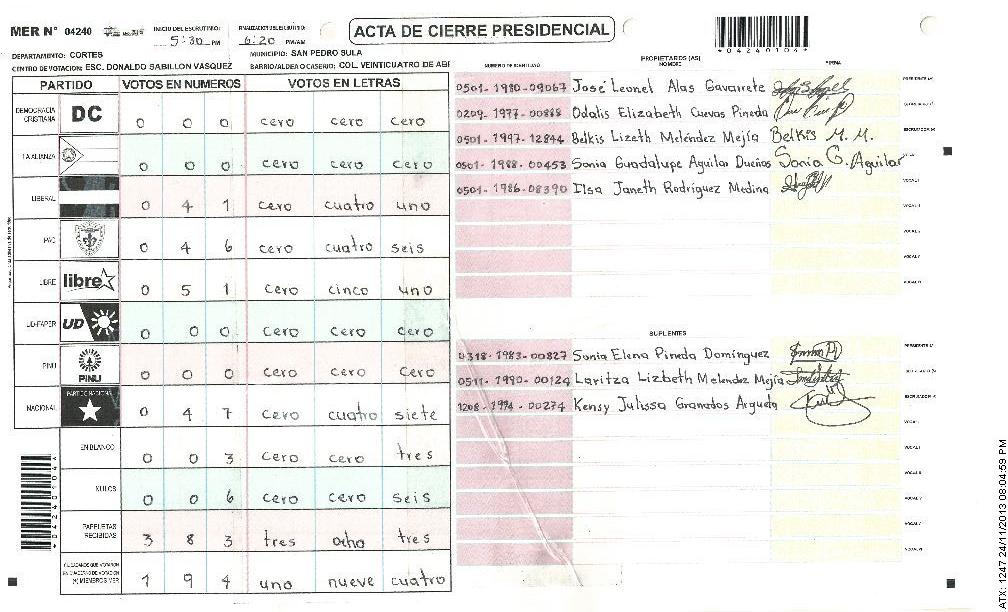 MER N° 04240 INICIO DEL ESCRUTINIO: 5:30 PM FINALIZACION DEL ESCRUTINIO: 6:20 PM/AM
ACTA DE CIERRE PRESIDENCIAL
*04240104*
DEPARTAMENTO: CORTES MUNICIPIO: SAN PEDRO SULA
CENTRO DE VOTACION: ESC. DONALDO SABILLON VASQUEZ BARRIO/ALDEA O CASERIO: COL. VEINTICUATRO DE ABR
PARTIDO VOTOS EN NUMEROS VOTOS EN LETRAS
DEMOCRACIA CRISTIANA DC 0 0 0 cero cero cero
LA ALIANZA 0 0 0 cero cero cero
LIBERAL 0 4 1 cero cuatro uno
PAC 0 4 6 cero cuatro seis
LIBRE libre 0 5 1 cero cinco uno
UD-FAPER UD 0 0 0 cero cero cero
PINU PINU 0 0 0 cero cero cero
NACIONAL PARTIDO NACIONAL 0 4 7 cero cuatro siete
EN BLANCO 0 0 3 cero cero tres
NULOS 0 0 6 cero cero seis
PAPELETAS RECIBIDAS 3 8 3 tres ocho tres
CIUDADANOS QUE VOTARON EN CUADERNO DE VOTACION (+) MIEMBROS MER 1 9 4 uno nueve cuatro
*04240104*
PROPIETARIOS (AS)
NUMERO DE IDENTIDAD NOMBRE FIRMA
0501-1980-09067 José Leonel Alas Gavarrete
0209-1977-00888 Odalis Elizabeth Cuevas Pineda
0501-1997-12844 Belkis Lizeth Meléndez Mejía Belkis M. M.
0501-1988-00453 Sonia Guadalupe Aguilar Dueños Sonia G. Aguilar
0501-1986-08390 Ilsa Janeth Rodríguez Medina
SUPLENTES
0318-1983-00827 Sonia Elena Pineda Domínguez
0511-1990-00124 Laritza Lizbeth Melendez Mejía
1208-1994-00274 Kensy Julissa Granados Argueta
ATX: 1247 24/11/2013 08:04:59 PM